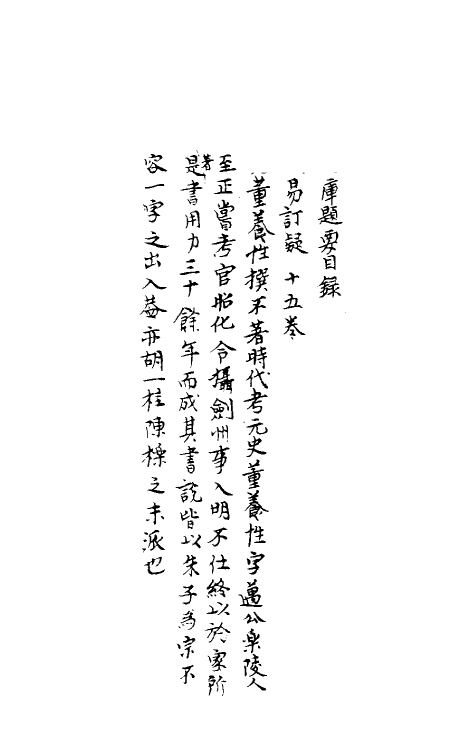 庫題要目錄
易訂疑 十五卷
董養性撰不著時代考元史董養性字邁公樂陵人
至正嘗考官昭化令攝劍州事入明不仕終以於家所
著是書用力三十餘年而成其書說皆以朱子為宗不
容一字之出入蓋亦胡一桂陳櫟之末派也